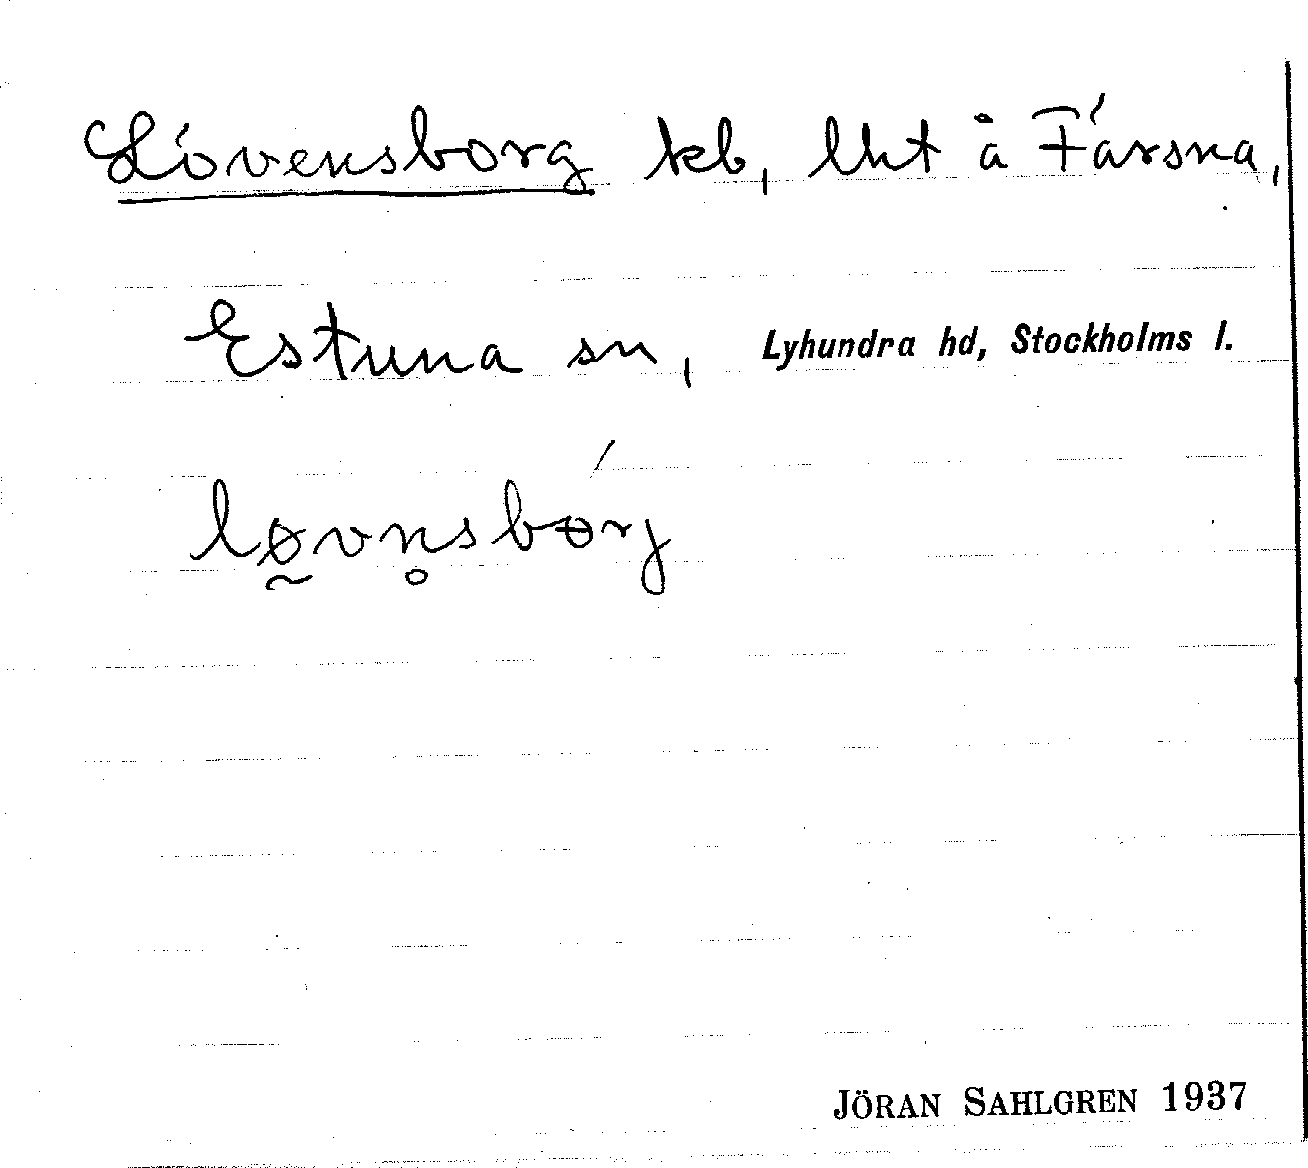 Lövensborg kb, lht å Färsna,
Estuna sn, Lyhundra hd, Stockholms l.
lø̰vn̥sbórj
JÖRAN SAHLGREN 1937